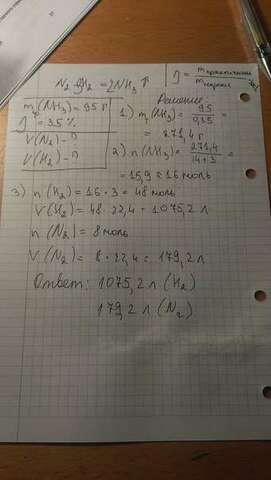 N₂ + 3H₂ = 2NH₃ ↑
η = m практическая / m теоретич.
m(NH₃) = 95 г
η = 35 %
V(N₂) - ?
V(H₂) - ?
Решение
1) m(NH₃) = 95 / 0,35 =
= 271,4 г
2) n(NH₃) = 271,4 / 14+3 =
= 15,9 ≈ 16 моль
3) n(H₂) = 16 · 3 = 48 моль
V(H₂) = 48 · 22,4 = 1075,2 л
n(N₂) = 8 моль
V(N₂) = 8 · 22,4 = 179,2 л
Ответ: 1075,2 л (H₂)
179,2 л (N₂)